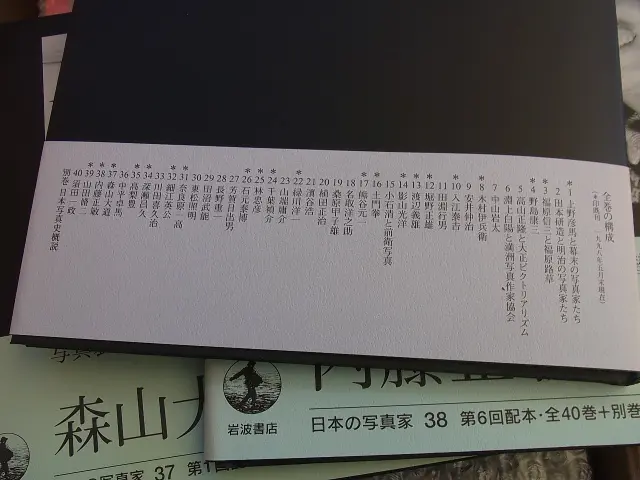 全巻の構成
(*印既刊 一九九八年五月末現在)
*1 上野彦馬と幕末の写真家たち
2 田本研造と明治の写真家たち
*3 福原信三と福原路草
*4 野島康三
5 高山正隆と大正ピクトリアリズム
6 淵上白陽と満洲写真作家協会
7 中山岩太
*8 木村伊兵衛
9 安井仲治
*10 入江泰吉
11 田淵行男
*12 堀野正雄
*13 渡辺義雄
*14 影山光洋
15 小石清と前衛写真
*16 土門拳
*17 熊谷元一
18 名取洋之助
19 桑原甲子雄
20 植田正治
21 濱谷浩
*22 緑川洋一
23 山端庸介
*24 千葉禎介
*25 林忠彦
*26 石元泰博
27 芳賀日出男
28 長野重一
29 田沼武能
30 東松照明
*31 奈良原一高
*32 細江英公
33 川田喜久治
*34 深瀬昌久
*35 高梨豊
36 中平卓馬
*37 森山大道
*38 内藤正敏
*39 山田脩二
40 須田一政
別巻 日本写真史概説
写真
森山大
の写真家 37 第1回
内藤正
岩波書店
日本の写真家 38 第6回配本・全40巻+別巻